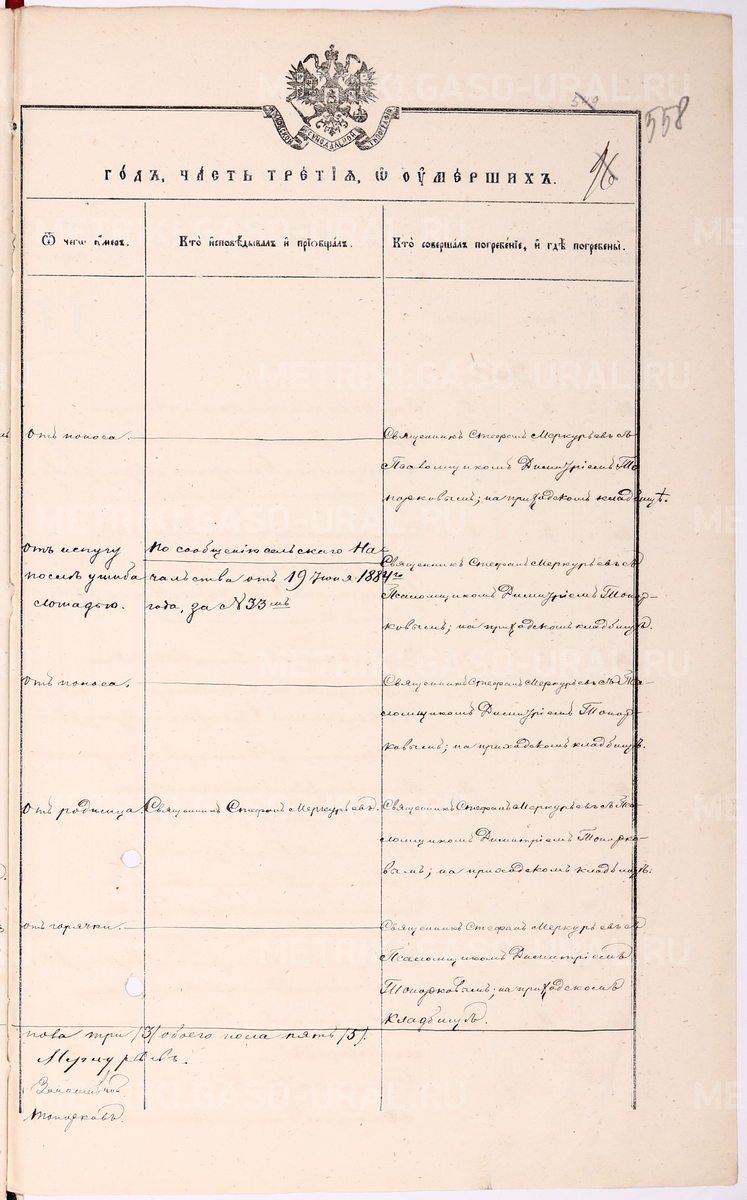 METRIKI.GASO-URAL.RU
558
96
го́дъ, ча́сть тре́тїѧ, ѡ҆ ᲂу҆ме́ршихъ.
Ѿ чегѡ̀ ᲂу҆́меръ.
Кто̀ и҆сповѣ́дывалъ и҆ прїѻбща́лъ.
Кто̀ соверша́лъ погребе́нїе, и҆ гдѣ̀ погребены̀.
отъ поноса.
Священникъ Стефанъ Меркурьевъ съ
Псаломщикомъ Димитріемъ То
порковымъ; на приходскомъ кладбищѣ.
отъ испугу
послѣ ушиба
лошадью.
по сообщенію сельскаго На-
чальства отъ 19 Іюня 1884го
года, за №33мъ
Священникъ Стефанъ Меркурьевъ съ
Псаломщикомъ Димитріемъ Топор-
ковымъ; на приходскомъ кладбищѣ.
отъ поноса.
Священникъ Стефанъ Меркурьевъ съ Пса-
ломщикомъ Димитріемъ Топор-
ковымъ; на приходскомъ кладбищѣ.
отъ родимца.
Священникъ Стефанъ Меркурьевъ.
Священникъ Стефанъ Меркурьевъ съ Пса-
ломщикомъ Димитріемъ Топорко-
вымъ; на приходскомъ кладбищѣ.
отъ горячки.
Священникъ Стефанъ Меркурьевъ съ
Псаломщикомъ Димитріемъ
Топорковымъ; на приходскомъ
кладбищѣ.
пола три /3/ обоего пола пять /5/.
Меркурьевъ.
Топорковъ.